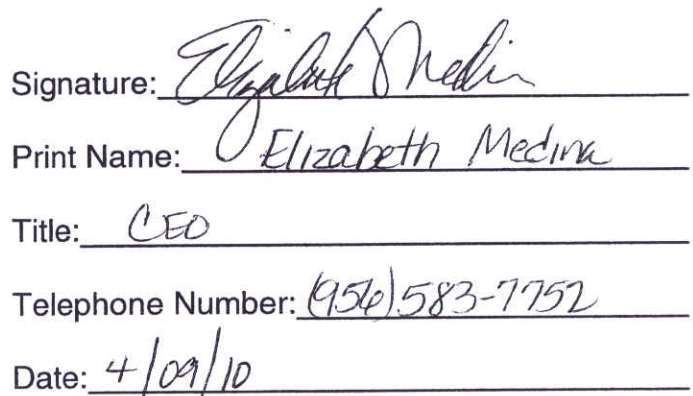 Signature: Elizabeth Medin
Print Name: Elizabeth Medina
Title: CEO
Telephone Number: (956) 583-7752
Date: 4/09/10